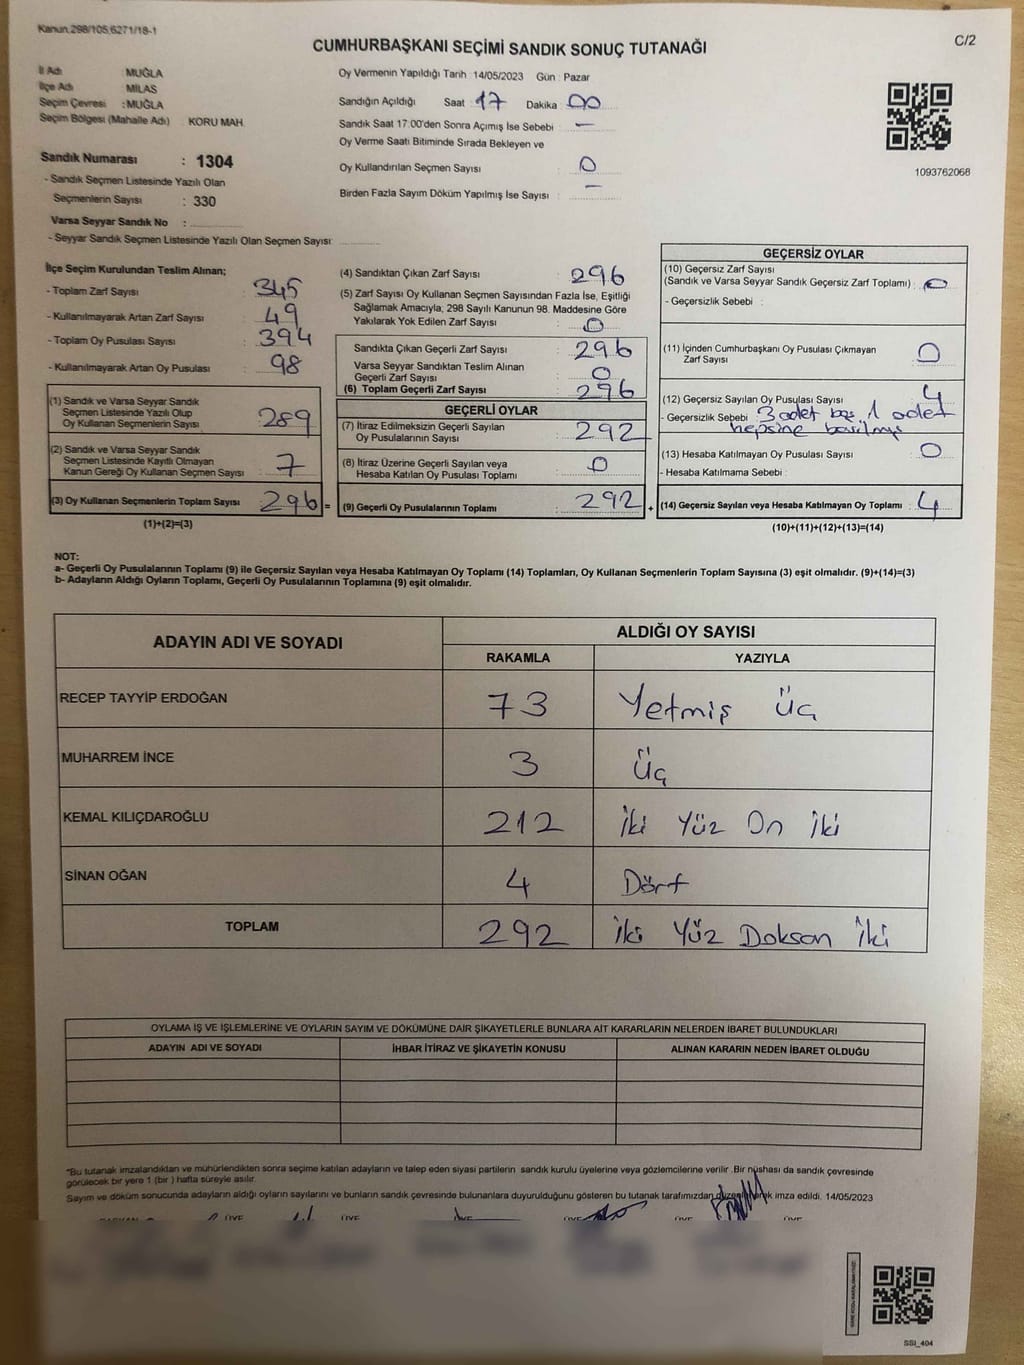 Kanun.298/105;6271/18-1
C/2
CUMHURBAŞKANI SEÇİMİ SANDIK SONUÇ TUTANAĞI
İl Adı : MUĞLA
İlçe Adı : MİLAS
Seçim Çevresi : MUĞLA
Seçim Bölgesi (Mahalle Adı) KORU MAH.
Sandık Numarası : 1304
- Sandık Seçmen Listesinde Yazılı Olan
Seçmenlerin Sayısı : 330
Varsa Seyyar Sandık No :
- Seyyar Sandık Seçmen Listesinde Yazılı Olan Seçmen Sayısı:
Oy Vermenin Yapıldığı Tarih : 14/05/2023 Gün : Pazar
Sandığın Açıldığı Saat : 17 Dakika : 00
Sandık Saat 17.00'den Sonra Açımış İse Sebebi : —
Oy Verme Saati Bitiminde Sırada Bekleyen ve
Oy Kullandırılan Seçmen Sayısı : 0
Birden Fazla Sayım Döküm Yapılmış İse Sayısı : —
1093762068
İlçe Seçim Kurulundan Teslim Alınan;
- Toplam Zarf Sayısı : 345
- Kullanılmayarak Artan Zarf Sayısı : 49
- Toplam Oy Pusulası Sayısı : 394
- Kullanılmayarak Artan Oy Pusulası : 98
(1) Sandık ve Varsa Seyyar Sandık
Seçmen Listesinde Yazılı Olup
Oy Kullanan Seçmenlerin Sayısı : 289
(2) Sandık ve Varsa Seyyar Sandık
Seçmen Listesinde Kayıtlı Olmayan
Kanun Gereği Oy Kullanan Seçmen Sayısı : 7
(3) Oy Kullanan Seçmenlerin Toplam Sayısı : 296 =
(1)+(2)=(3)
(4) Sandıktan Çıkan Zarf Sayısı : 296
(5) Zarf Sayısı Oy Kullanan Seçmen Sayısından Fazla İse, Eşitliği
Sağlamak Amacıyla, 298 Sayılı Kanunun 98. Maddesine Göre
Yakılarak Yok Edilen Zarf Sayısı : 0
Sandıkta Çıkan Geçerli Zarf Sayısı : 296
Varsa Seyyar Sandıktan Teslim Alınan
Geçerli Zarf Sayısı : 0
(6) Toplam Geçerli Zarf Sayısı : 296
GEÇERLİ OYLAR
(7) İtiraz Edilmeksizin Geçerli Sayılan
Oy Pusulalarının Sayısı : 292
(8) İtiraz Üzerine Geçerli Sayılan veya
Hesaba Katılan Oy Pusulası Toplamı : 0
(9) Geçerli Oy Pusulalarının Toplamı : 292 +
GEÇERSİZ OYLAR
(10) Geçersiz Zarf Sayısı
(Sandık ve Varsa Seyyar Sandık Geçersiz Zarf Toplamı) : 0
- Geçersizlik Sebebi :
(11) İçinden Cumhurbaşkanı Oy Pusulası Çıkmayan
Zarf Sayısı : 0
(12) Geçersiz Sayılan Oy Pusulası Sayısı : 4
- Geçersizlik Sebebi : 3 adet boş, 1 adet
hepsine basılmış
(13) Hesaba Katılmayan Oy Pusulası Sayısı : 0
- Hesaba Katılmama Sebebi :
(14) Geçersiz Sayılan veya Hesaba Katılmayan Oy Toplamı : 4
(10)+(11)+(12)+(13)=(14)
NOT:
a- Geçerli Oy Pusulalarının Toplamı (9) ile Geçersiz Sayılan veya Hesaba Katılmayan Oy Toplamı (14) Toplamları, Oy Kullanan Seçmenlerin Toplam Sayısına (3) eşit olmalıdır. (9)+(14)=(3)
b- Adayların Aldığı Oyların Toplamı, Geçerli Oy Pusulalarının Toplamına (9) eşit olmalıdır.
ADAYIN ADI VE SOYADI
ALDIĞI OY SAYISI
RAKAMLA YAZIYLA
RECEP TAYYİP ERDOĞAN 73 Yetmiş Üç
MUHARREM İNCE 3 Üç
KEMAL KILIÇDAROĞLU 212 İki Yüz On İki
SİNAN OĞAN 4 Dört
TOPLAM 292 İki Yüz Doksan İki
OYLAMA İŞ VE İŞLEMLERİNE VE OYLARIN SAYIM VE DÖKÜMÜNE DAİR ŞİKAYETLERLE BUNLARA AİT KARARLARIN NELERDEN İBARET BULUNDUKLARI
ADAYIN ADI VE SOYADI İHBAR İTİRAZ VE ŞİKAYETİN KONUSU ALINAN KARARIN NEDEN İBARET OLDUĞU
"Bu tutanak imzalandıktan ve mühürlendikten sonra seçime katılan adayların ve talep eden siyasi partilerin sandık kurulu üyelerine veya gözlemcilerine verilir .Bir nüshası da sandık çevresinde
görülecek bir yere 1 (bir ) hafta süreyle asılır.
Sayım ve döküm sonucunda adayların aldığı oyların sayılarını ve bunların sandık çevresinde bulunanlara duyurulduğunu gösteren bu tutanak tarafımızdan imza edildi. 14/05/2023
ÜYE ÜYE ÜYE ÜYE ÜYE
SSI_404